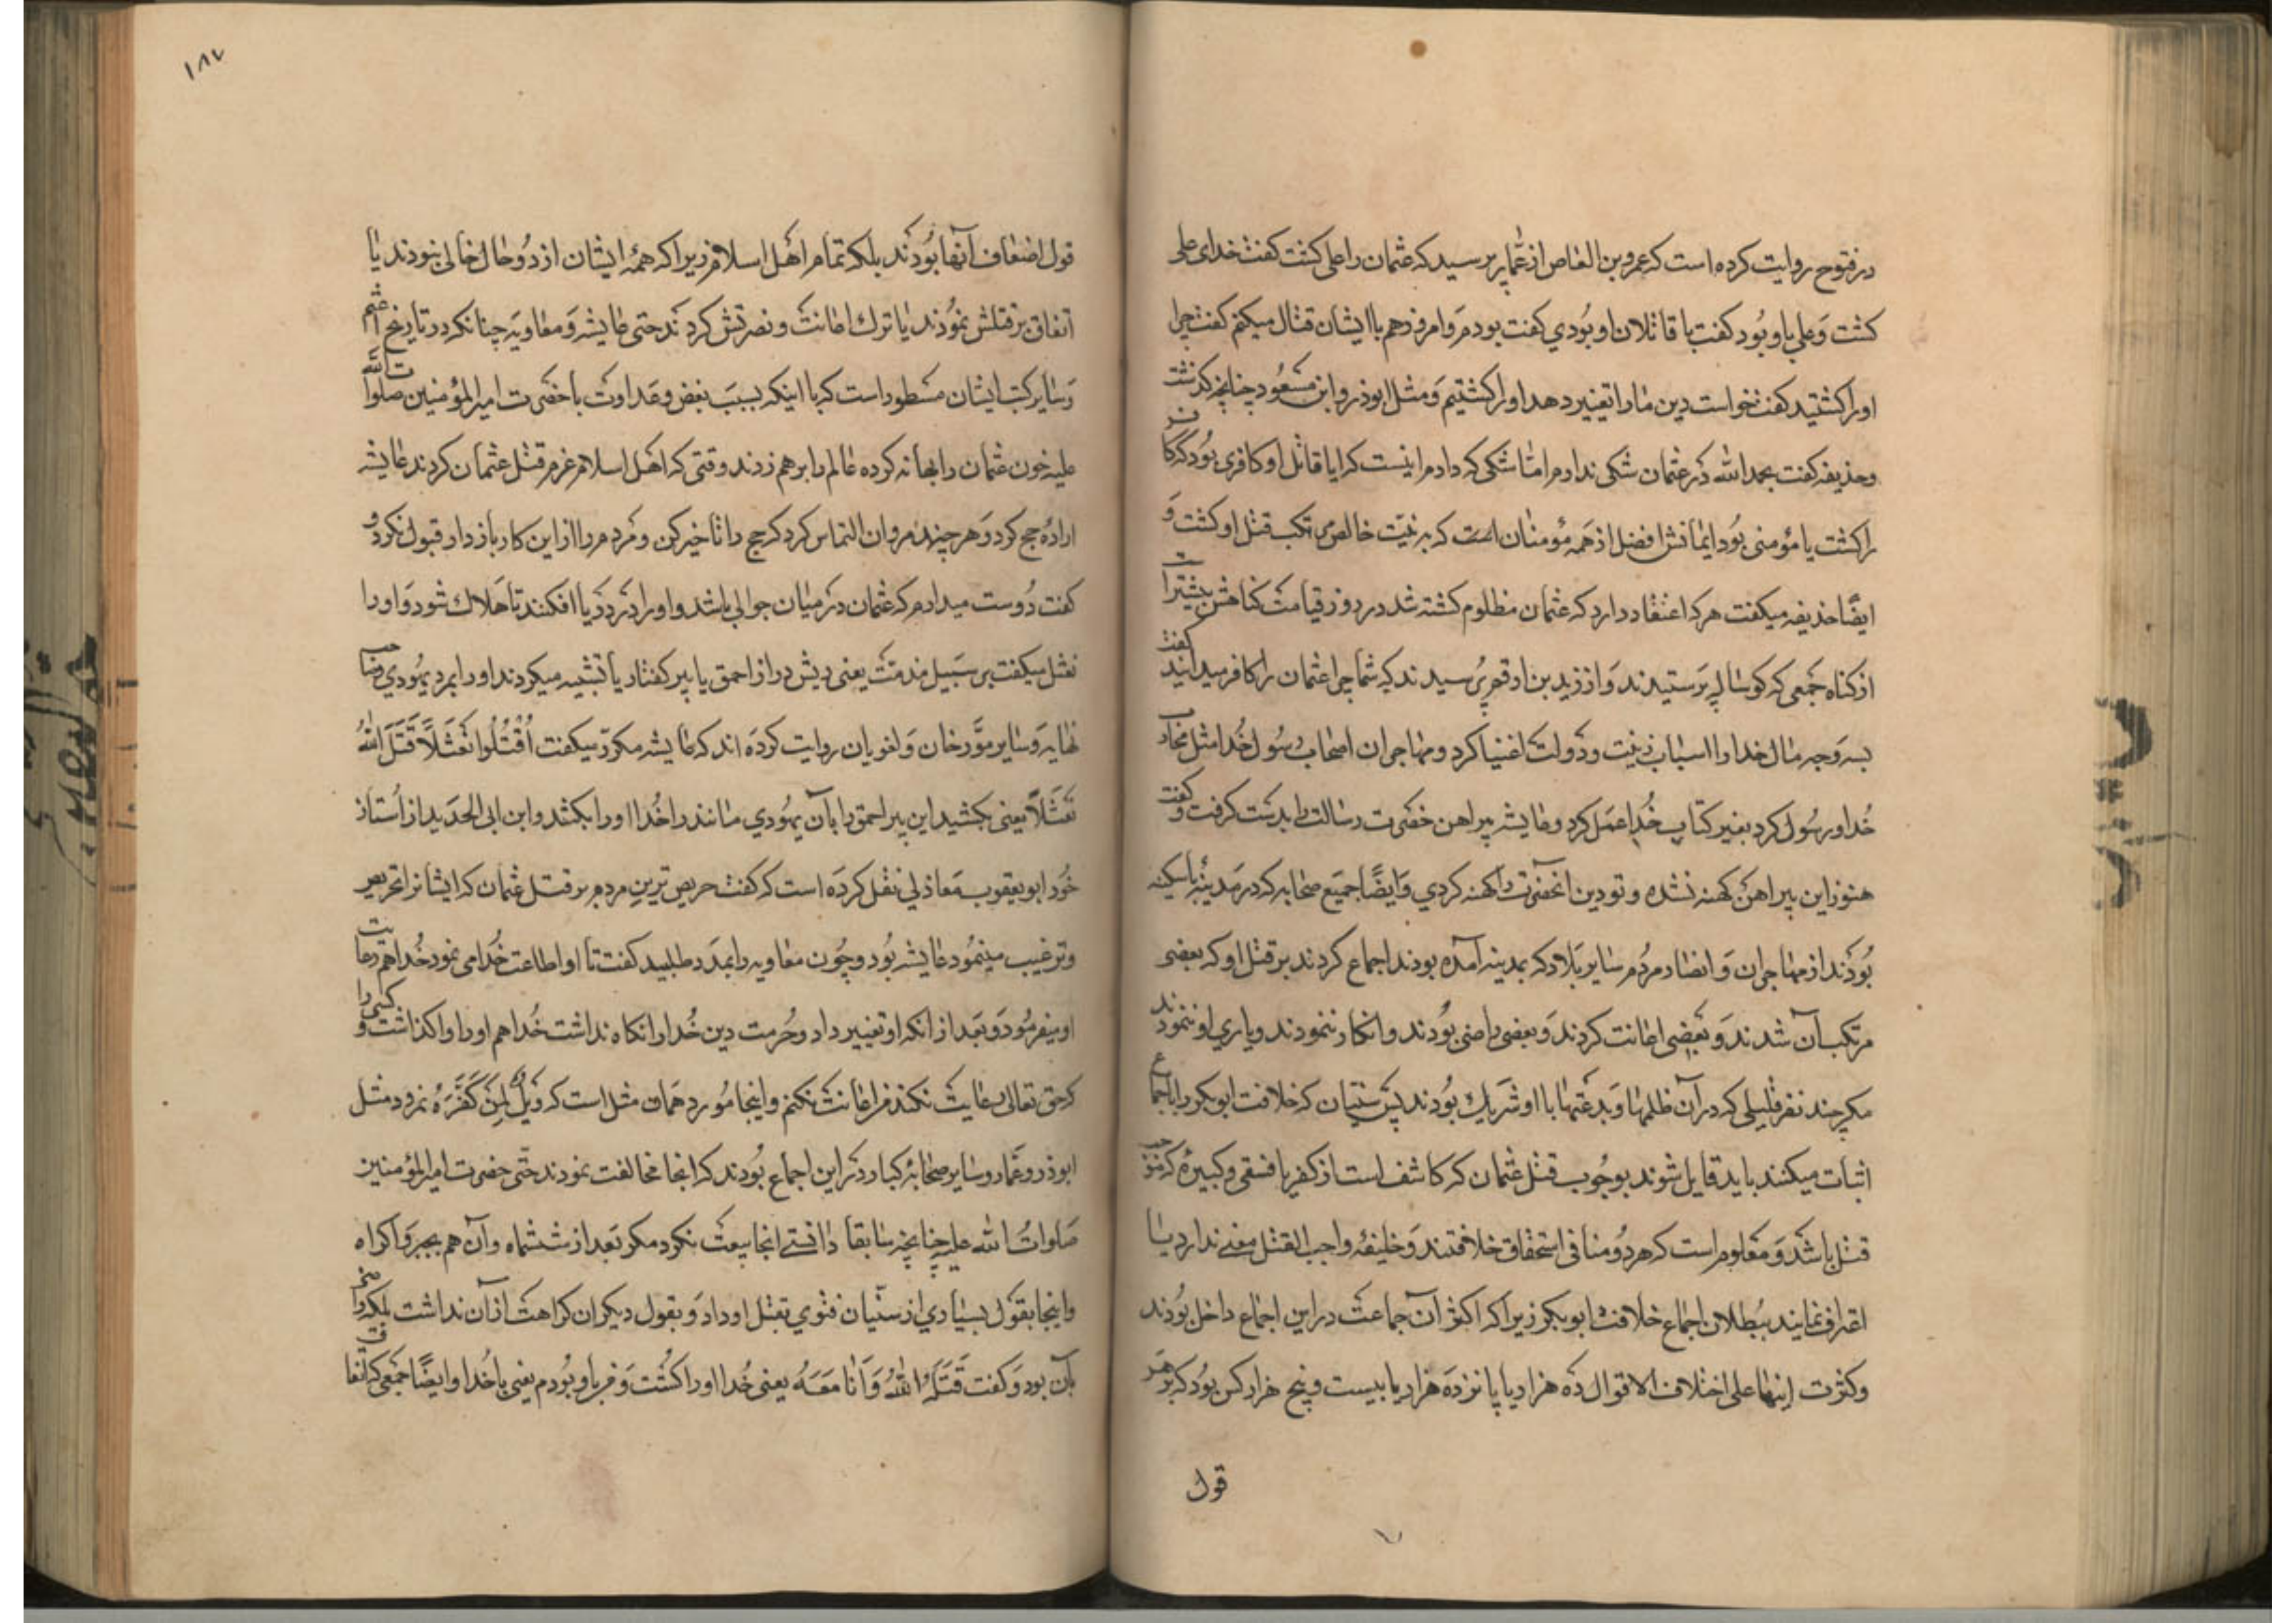 در فتوح روایت کرده است که عمرو بن العاص از عمار پرسید که عثمان را علی کشت گفت خدای علی
کشت و علی با او بود گفت با قاتلان او بودی گفت بودم و امروز هم با ایشان قتال میکنم گفت چرا
او را کشتید گفت خواست دین ما را تغییر دهد او را کشتیم و مثل ابوذر و ابن مسعود چنانچه گذشت
و حذیفه گفت بحمد الله در عثمان شکی ندارم اما شکی که دارم اینست که ایا قاتل او کافری بود که کافری
را کشت یا مؤمنی بود ایمانش افضل از همه مؤمنان است که به نیت خالص مرتکب قتل او کشت و
ایضا حذیفه میگفت هر که اعتقاد دارد که عثمان مظلوم کشته شد در روز قیامت گناهش بیشتر است
از گناه جمعی که گوساله پرستیدند و از زید بن ارقم پرسیدند که شما چرا عثمان را کافر میدانید گفت
بسه وجه مال خدا را اسباب زینت و دولت اغنیا کرد و مهاجران اصحاب رسول خدا مثل محارب
خدا و رسول کرد بغیر کتاب خدا عمل کرد و عایشه پیراهن حضرت رسالت را بدست گرفت و گفت
هنوز این پیراهن کهنه نشده و تو دین آنحضرت را کهنه کردی و ایضا جمیع صحابه که در مدینه باسکینه
بودند از مهاجران و انصار و مردم سایر بلاد که بمدینه آمده بودند اجماع کردند بر قتل او که بعضی
مرتکب آن شدند و بعضی اعانت کردند و بعضی راضی بودند و انکار ننمودند و یاری او ننمودند
مگر چند نفر قلیلی که در آن ظلمها و بدعتها با او شریک بودند پس سنیان که خلافت ابوبکر را باجماع
اثبات میکنند باید قایل شوند بوجوب قتل عثمان که کاشف است از کفر یا فسقی و کبیره که موجب
قتل باشد و معلوم است که هر دو منافی استحقاق خلافتند و خلیفه واجب القتل معنی ندارد یا
اعتراف نمایند ببطلان اجماع خلافت ابوبکر زیرا که اکثر آن جماعت در این اجماع داخل بودند
و کثرت اینها علی اختلاف الاقوال ده هزار یا پانزده هزار یا بیست و پنج هزار کس بود که بر هر
قول
۱۸۷
قول اضعاف آنها بودند بلکه تمام اهل اسلام زیرا که همه ایشان از دو حال خالی نبودند یا
اتفاق بر قتلش نمودند یا ترک اعانت و نصرتش کردند حتی عایشه و معاویه چنانکه در تاریخ اعثم
و سایر کتب ایشان مسطور است که با اینکه بسبب بغض و عداوت با حضرت امیرالمؤمنین صلوات الله
علیه خون عثمان را بهانه کرده عالم را بر هم زدند وقتی که اهل اسلام عزم قتل عثمان کردند عایشه
اراده حج کرد و هر چند مروان التماس کرد که حج را تاخیر کن و مردم را از این کار باز دار قبول نکرد و
گفت دوست میدارم که عثمان در میان جوالی باشد و او را در دریا افکنند تا هلاک شود و او را
نعثل میگفت بر سبیل مذمت یعنی ریش دراز احمق یا پیر کفتار یا تشبیه میکردند او را بمرد یهودی صاحب
نهایه و سایر مورخان و لغویان روایت کرده اند که عایشه مکرر میگفت اُقْتُلُوا نَعْثَلًا قَتَلَ اللّٰهُ
نَعْثَلًا یعنی بکشید این پیر احمق را بآن یهودی مانند را خدا او را بکشد و ابن ابی الحدید از استاد
خود ابو یعقوب معاذلی نقل کرده است که گفت حریص ترین مردم بر قتل عثمان که ایشانرا تحریص
و ترغیب مینمود عایشه بود و چون معاویه را بمدد طلبید گفت تا او اطاعت خدا می نمود خدا هم رعایت
او میفرمود و بعد از آنکه او تغییر داد و حرمت دین خدا را نگاه نداشت خدا هم او را واگذاشت و کسی را
که حق تعالی رعایت نکند من اعانت نکنم و اینجا مورد همان مثل است که وَیْلٌ لِمَنْ کَفَّرَهُ نمرود مثل
ابوذر و عمار و سایر صحابه کبار در این اجماع بودند که آنجا مخالفت نمودند حتی حضرت امیرالمؤمنین
صلوات الله علیه چنانچه سابقا دانستی آنجا بیعت نکرد مگر بعد از ششماه و آن هم بجبر و اکراه
و اینجا بقول بسیاری از سنیان فتوی بقتل او داد و بقول دیگران کراهت از آن نداشت بلکه راضی
بآن بود و گفت قَتَلَهُ اللّٰهُ وَ أَنَا مَعَهُ یعنی خدا او را کشت و من با او بودم یعنی با خدا و ایضا جمعی که اتفاق